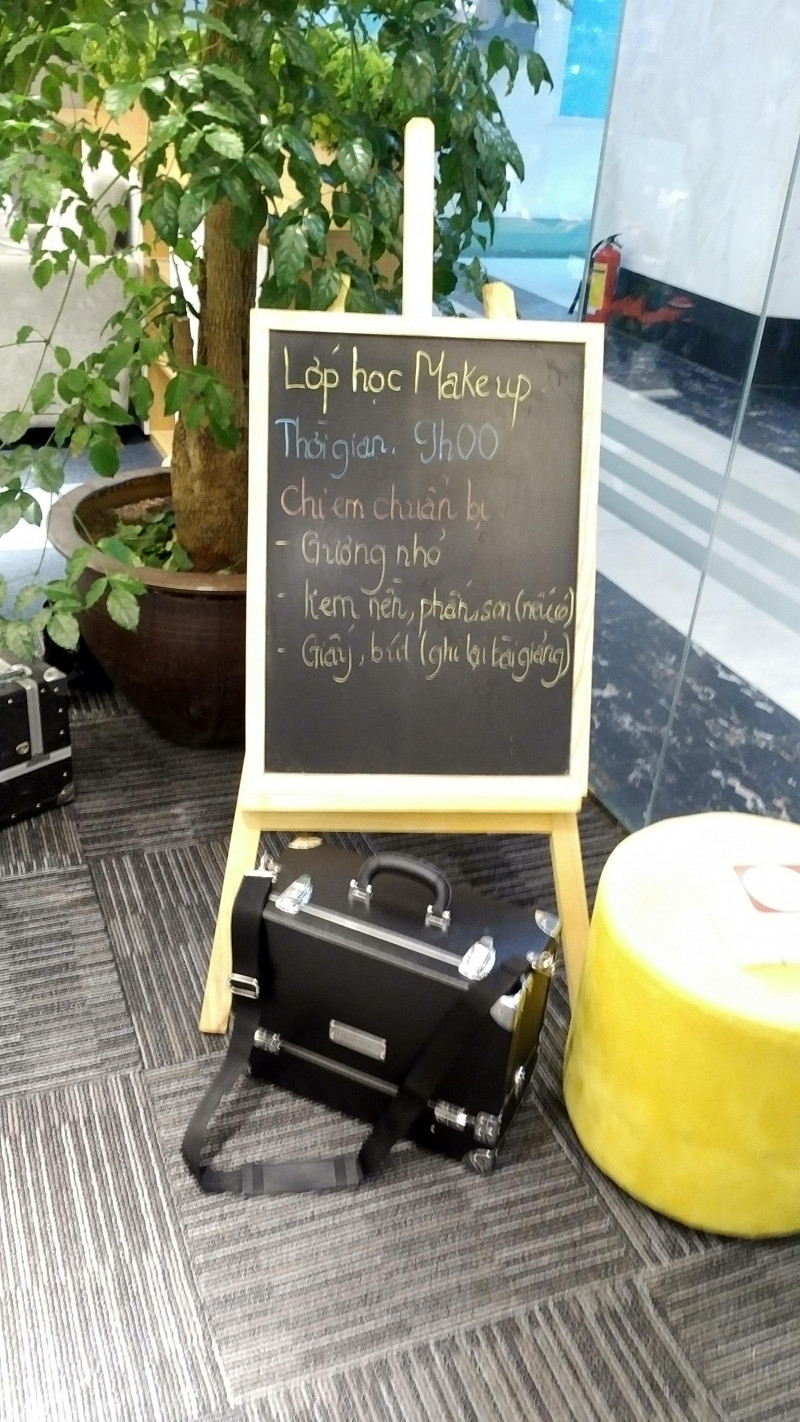 Lớp học Makeup
Thời gian. 9h00
Chị em chuẩn bị
- Gương nhỏ
- Kem nền, phấn, son (nếu có)
- Giấy, bút (ghi lại bài giảng)